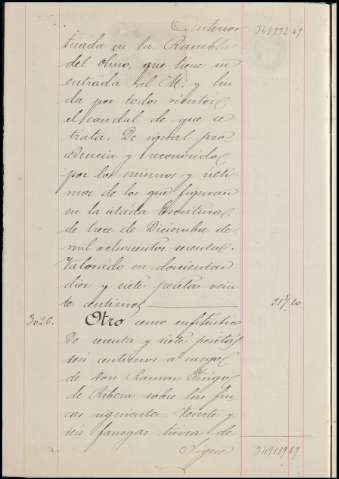 Anterior 348972 49
tuada en la Rambla
del Olmo, que tiene su
entrada al M. y lin
da por todos vientos
el caudal de que se
trata. De igual pro
cedencia y reconocida
por los mismos y últi
mos de los que figuran
en la citada Escritura
de trece de Diciembre de
mil ochocientos sesenta.
Valorado en doscientas
diez y siete pesetas vein
te centimos 217 20
3026. Otro censo enfitéutico
De sesenta y siete pesetas
seis centimos a cargo
de Don Ramon
de Ribera sobre las fin
cas siguientes Veinte y
seis fanegas tierra de
Sigue 349189 69